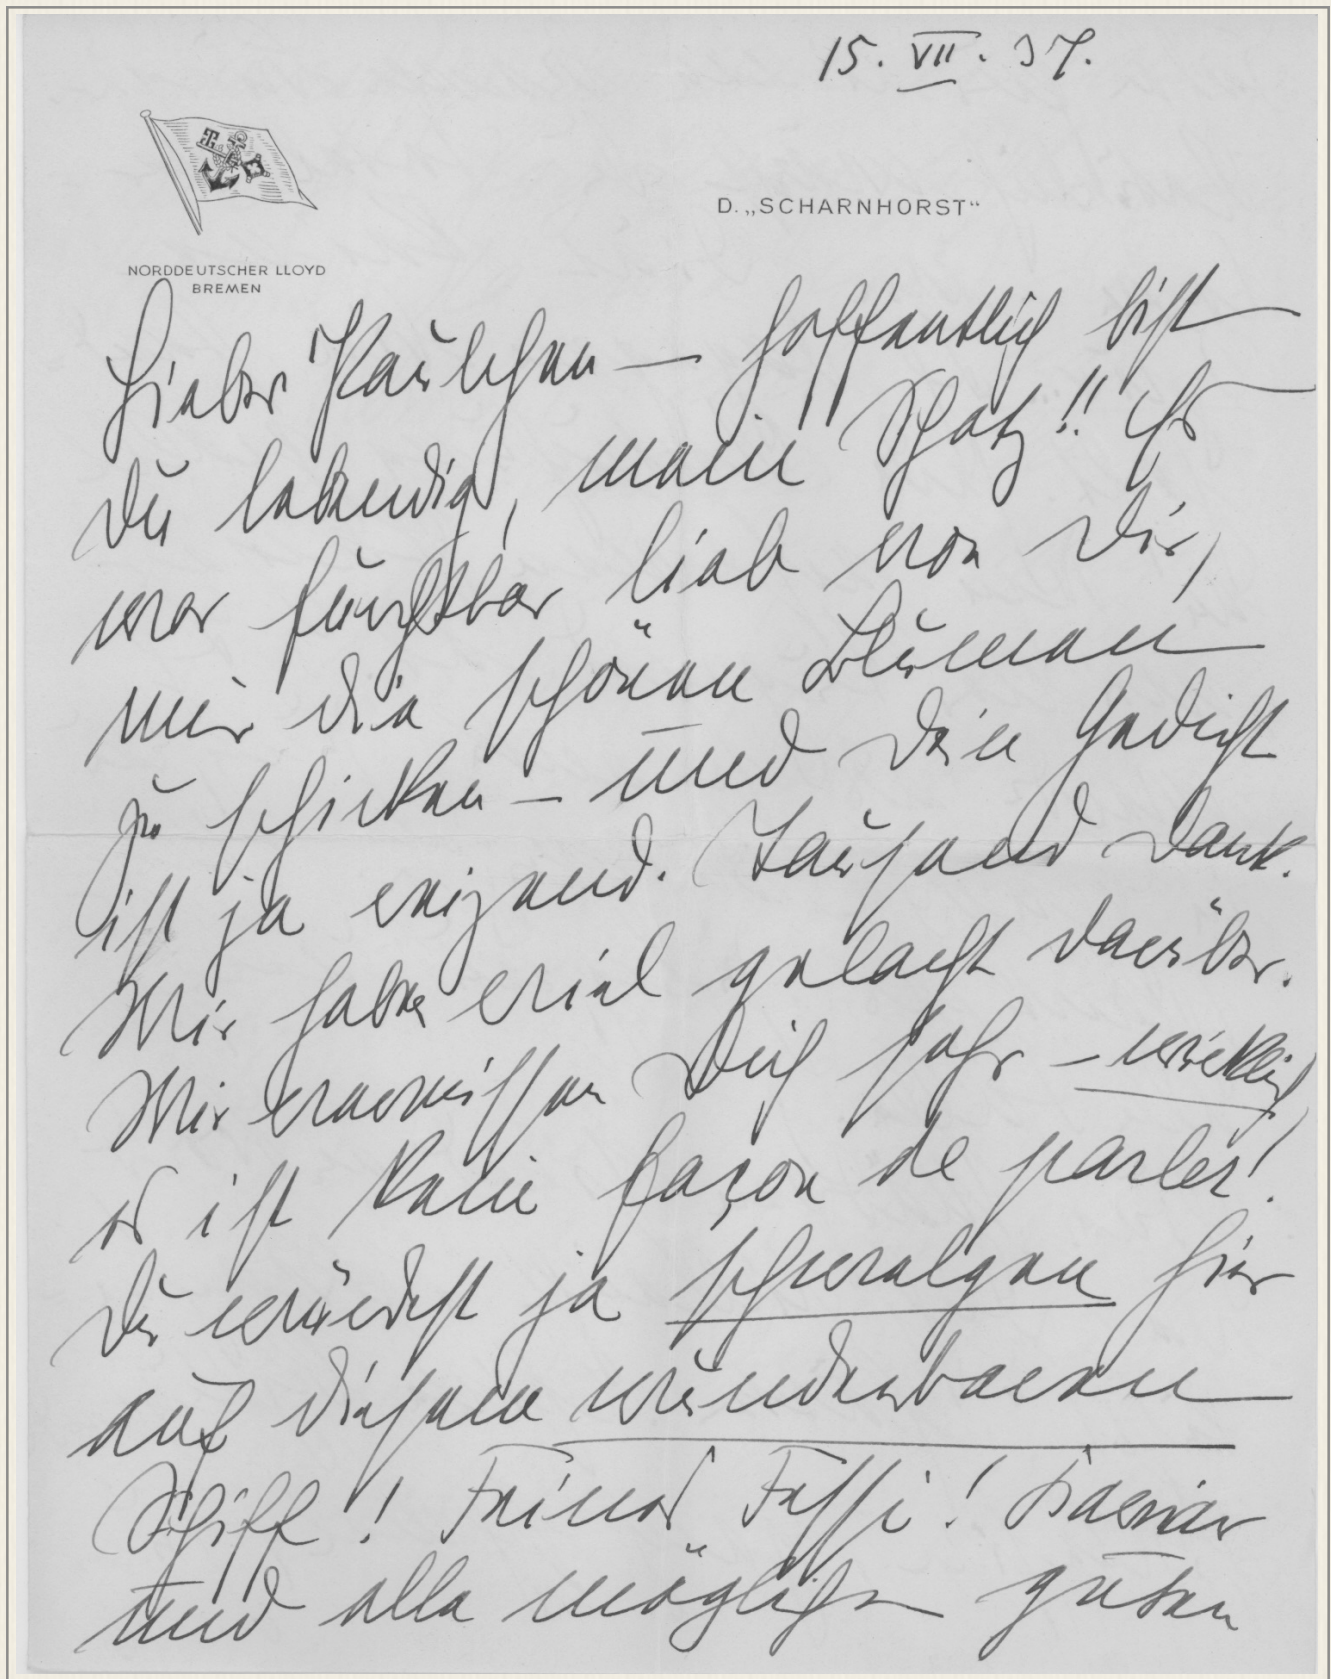 15. VII. 37.
D. „SCHARNHORST“
NORDDEUTSCHER LLOYD
BREMEN
Lieber Paulchen — hoffentlich bist
Du lebendig, mein Schatz!! Es
war furchtbar lieb von Dir,
mir die schönen Blumen
zu schicken — und Dein Gedicht
ist ja reizend. Tausend Dank.
Wir haben viel gelacht darüber.
Wir vermissen Dich sehr — wirklich,
es ist keine façon de parler!
Du würdest ja schwelgen hier
auf diesem wunderbaren
Schiff! Feines Essi! Kaviar
und alle möglichen guten